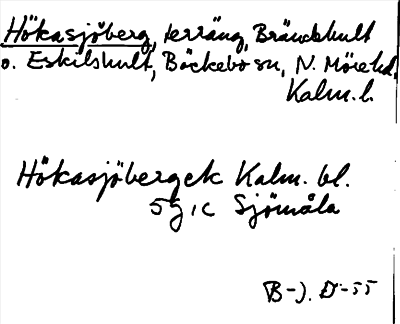 Hökasjöberg, terräng, Brändekult
o. Eskilskult, Bäckebo sn, N. Möre hd.
Kalm. l.
Hökasjöberg ek Kalm. bl.
5 g, c Sjömåla
B-J. D-55